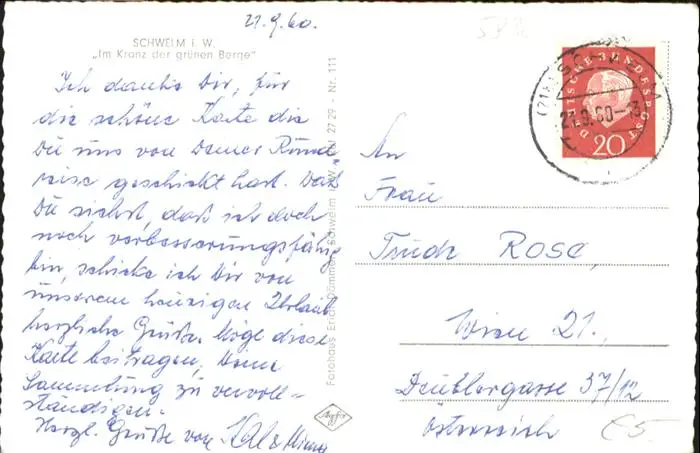 21.9.60.
SCHWELM i. W.
„Im Kranz der grünen Berge“
Ich danke Dir, für
die schöne Karte die
Du uns von Deiner Rund
reise geschickt hast. Daß
Du siehst, daß ich doch
noch verbesserungsfähig
bin, schicke ich Dir von
unserem heurigen Urlaub
herzliche Grüße. Möge diese
Karte beitragen, Deine
Sammlung zu vervoll-
ständigen.
Herzl. Grüße von Karl & Minna
Fotohaus Erich Schwelm 27 29 - Nr. 111
Agfa
DEUTSCHE BUNDESPOST
20
SCHWELM
21.9.60-13
An
Frau
Trude ROSE,
Wien 21.
Deublergasse 37/12
Österreich
€5